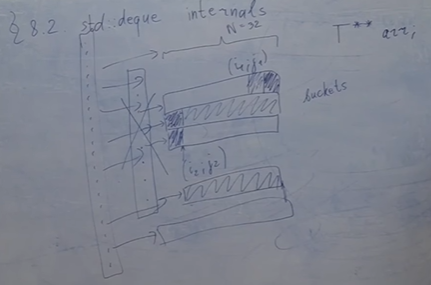 § 8.2. std deque internals
N=32
T** arr;
(i₁,j₁)
buckets
(i₂,j₂)